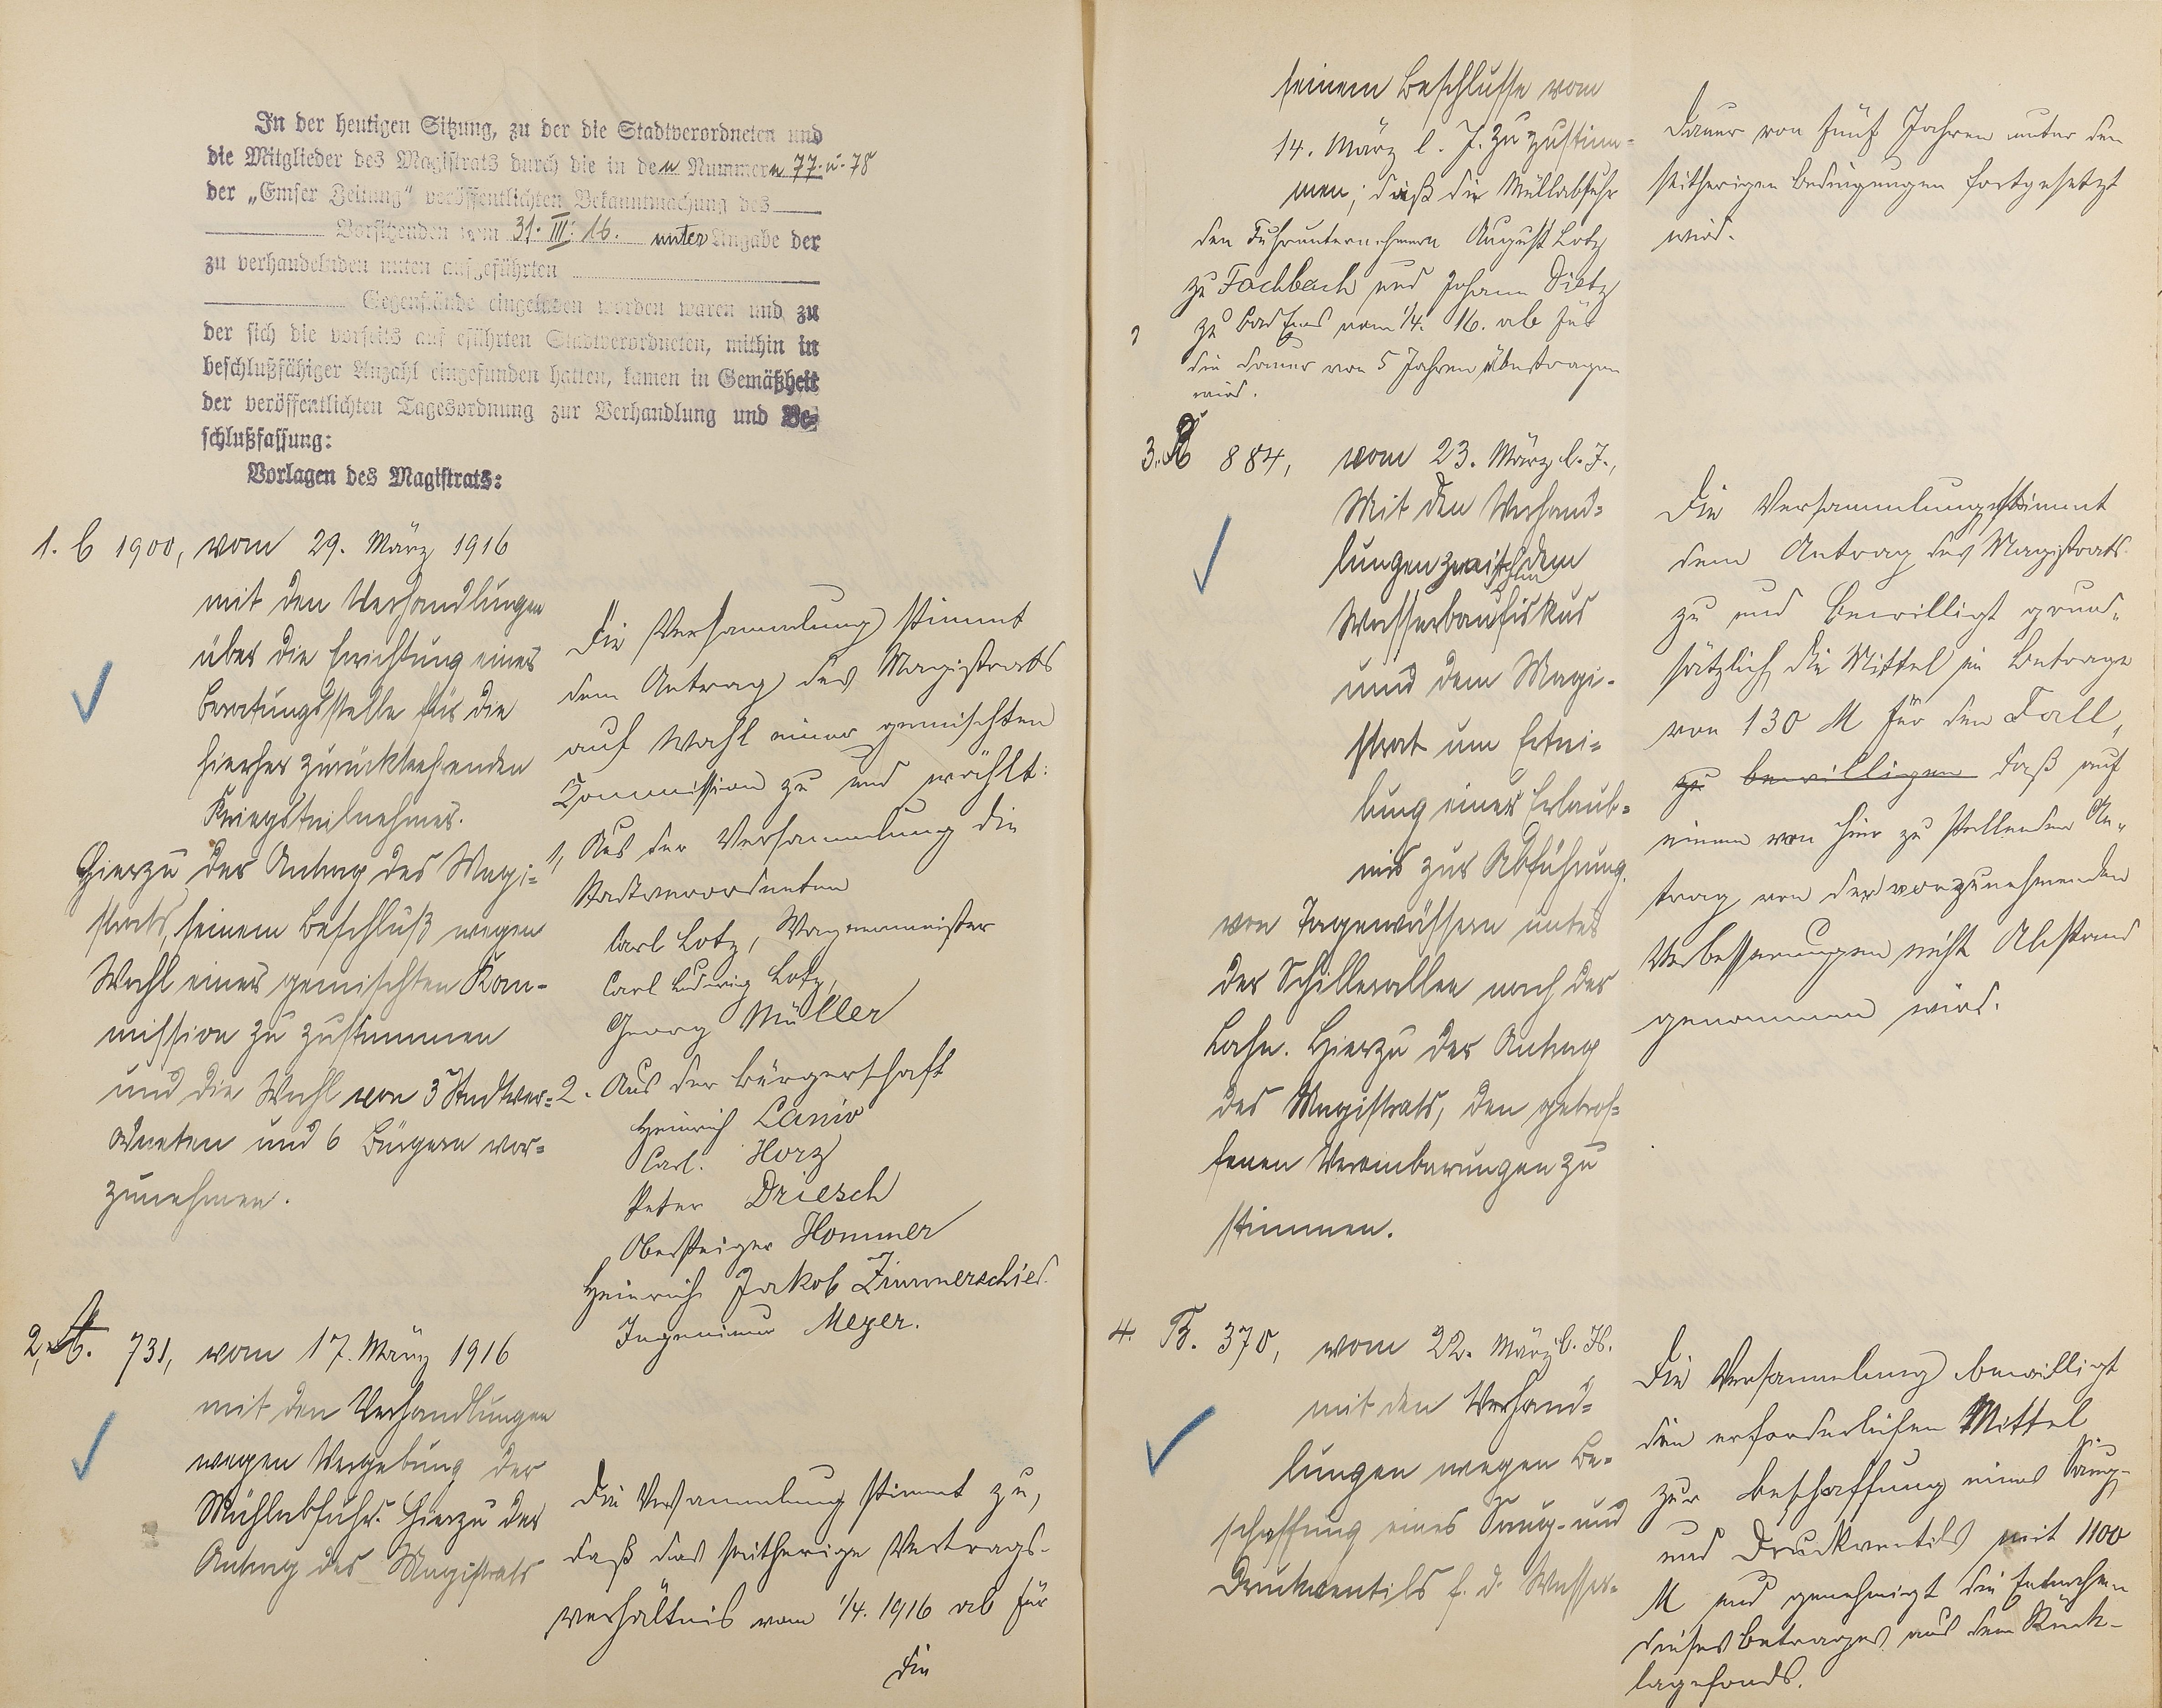 In der heutigen Sitzung, zu der die Stadtverordneten und
die Mitglieder des Magistrats durch die in den Nummern 77. u. 78
der „Emser Zeitung" veröffentlichten Bekanntmachung des
Vorsitzenden vom 31. III. 16. unter Angabe der
zu verhandelnden unten aufgeführten
Gegenstände eingeladen worden waren und zu
der sich die vorseits aufgeführten Stadtverordneten, mithin in
beschlußfähiger Anzahl eingefunden hatten, kamen in Gemäßheit
der veröffentlichten Tagesordnung zur Verhandlung und Be-
schlußfassung:
Vorlagen des Magistrats:
1. C 1900, vom 29. März 1916
mit den Verhandlungen
über die Errichtung einer
Beratungsstelle für die
hierher zurückkehrenden
Kriegsteilnehmer.
Hierzu der Antrag des Magi-
strats, seinem Beschluß wegen
Wahl einer gemischten Kom-
mission zu zustimmen
und die Wahl von 3 Stadtver-
ordneten und 6 Bürgern vor-
zunehmen.
Die Versammlung stimmt
dem Antrag des Magistrats
auf Wahl einer gemischten
Commission zu und wählt:
1, Aus der Versammlung die
Stadtverordneten
Carl Lotz, Wagenmeister
Carl Ludwig Lotz,
Georg Müller
2. Aus der Bürgerschaft
Heinrich Lanio
Carl. Horz
Peter Driesch
Obersteiger Hommer
Heinrich Jakob Zimmerschied
Ingenieur Meyer.
2, A. 731, vom 17. März 1916
mit den Verhandlungen
wegen Vergebung der
Müllabfuhr. Hierzu der
Antrag des Magistrats
Die Versammlung stimmt zu,
daß das seitherige Vertrags-
verhältnis vom 1/4. 1916 ab für
die
seinem Beschlusse vom
14. März l. J. zu zustim-
men; daß die Müllabfuhr
den Fuhrunternehmern August Lotz
zu Fachbach und Johann Dietz
zu Bad Ems vom 1/4. 16. ab für
die Dauer von 5 Jahren übertragen
wird.
Dauer von fünf Jahren unter den
seitherigen Bedingungen fortgesetzt
wird.
3. A 884, vom 23. März l. J.,
Mit den Verhand-
lungen zwischen dem
Wasserbaufiskus
und dem Magi-
strat um Ertei-
lung einer Erlaub-
nis zur Abführung
von Tagewässern unter
der Schillerallee nach der
Lahn. Hierzu der Antrag
des Magistrats, den getrof-
fenen Vereinbarungen zu
stimmen.
Die Versammlung stimmt
dem Antrag des Magistrats
zu und bewilligt grund-
sätzlich die Mittel im Betrage
von 130 M für den Fall,
zu bewilligen daß auf
einem von hier zu stellenden An-
trag von den vorzunehmenden
Verbesserungen nicht Abstand
genommen wird.
4. B. 370, vom 22. März l. Js.
mit den Verhand-
lungen wegen Be-
schaffung eines Saug- und
Druckventils f. d. Wasser-
Die Versammlung bewilligt
die erforderlichen Mittel
zur Beschaffung eines Saug-
und Druckventils mit 1100
M und genehmigt die Entnahme
dieses Betrages aus dem Rück-
lagefonds.